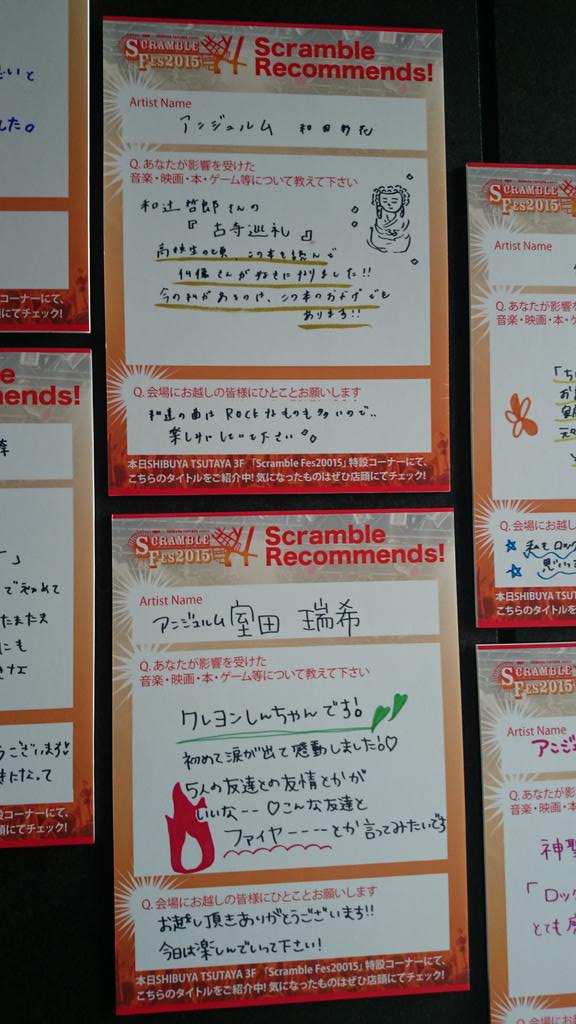 SCRAMBLE
FES2015
Scramble
Recommends!
Artist Name
アンジュルム 和田彩花
Q. あなたが影響を受けた
音楽・映画・本・ゲーム等について教えて下さい
和辻哲郎さんの
『古寺巡礼』
高校生の頃、この本を読んで
仏像さんが好きになりました!!
今の私があるのは、この本のおかげでも
あります!!
Q. 会場にお越しの皆様にひとことお願いします
私達の曲はROCKなものも多いので、
楽しみにしていてください
本日SHIBUYA TSUTAYA 3F 「Scramble Fes20015」特設コーナーにて、
こちらのタイトルをご紹介中! 気になったものはぜひ店頭にてチェック!
SCRAMBLE
FES2015
Scramble
Recommends!
Artist Name
アンジュルム 室田 瑞希
Q. あなたが影響を受けた
音楽・映画・本・ゲーム等について教えて下さい
クレヨンしんちゃんです!
初めて涙が出て感動しました!♡
5人の友達との友情とかが
いいな--♡こんな友達と
ファイヤー----とか言ってみたいです
Q. 会場にお越しの皆様にひとことお願いします
お越し頂きありがとうございます!!
今日は楽しんでいって下さい!
本日SHIBUYA TSUTAYA 3F 「Scramble Fes20015」特設コーナーにて、
こちらのタイトルをご紹介中! 気になったものはぜひ店頭にてチェック!
した。
コーナーにて、
にてチェック!
ends!
で初めて
たまたま
にも
うございます!
きになって
コーナーにて、
にてチェック!
SCRAMBLE
FES2015
Artist Name
Q. あなたが影
音楽・映画・本・ケ
Q. 会場にお越し
私もロッ
思いっ
本日SHIBUYA TSUT
こちらのタイトルをご
SCRAMBLE
FES2015
Artist Name
アンジ
Q. あなたが影
音楽・映画・本・
神聖
「ロッ
とても
Q. 会場にお